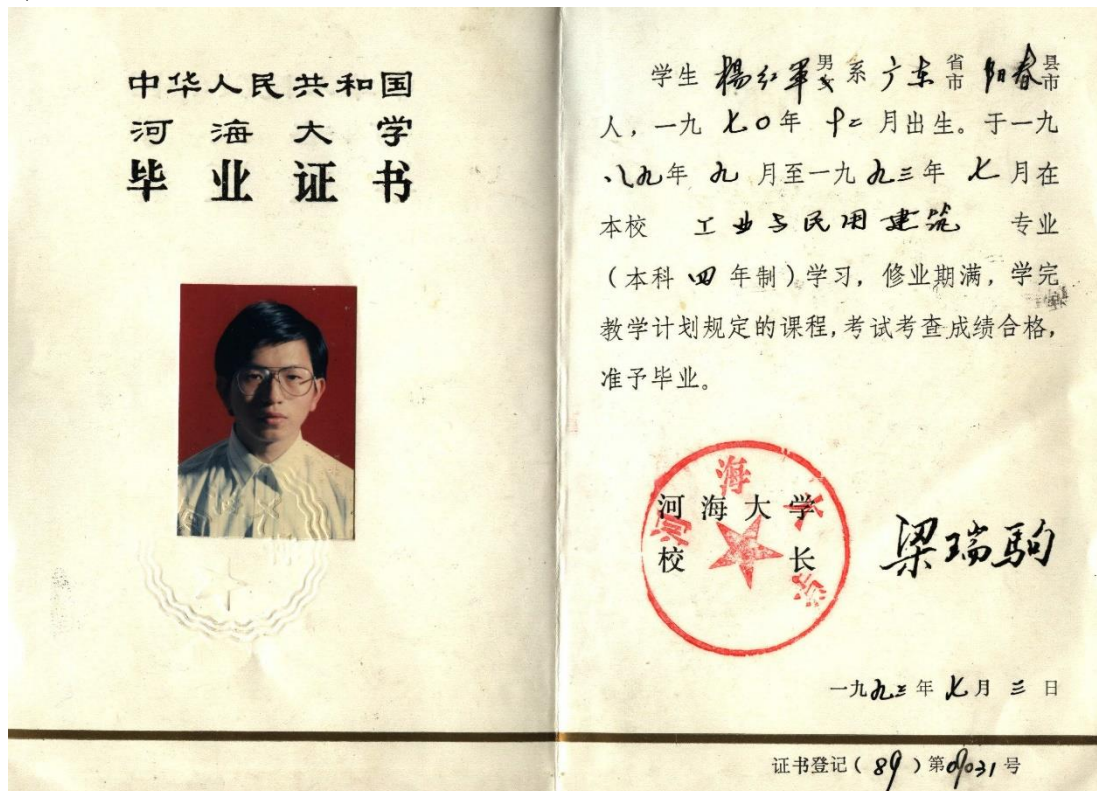 中华人民共和国
河海大学
毕业证书
学生 楊红军 男女 系 广东 省市 阳春 县市
人，一九七〇年 十二 月出生。于一九
八九年 九 月至一九九三年 七 月在
本校 工业与民用建筑 专业
（本科 四 年制）学习，修业期满，学完
教学计划规定的课程，考试考查成绩合格，
准予毕业。
河海大学
河海大学
校长
梁瑞驹
一九九三年 七月 三 日
证书登记（89）第09031号